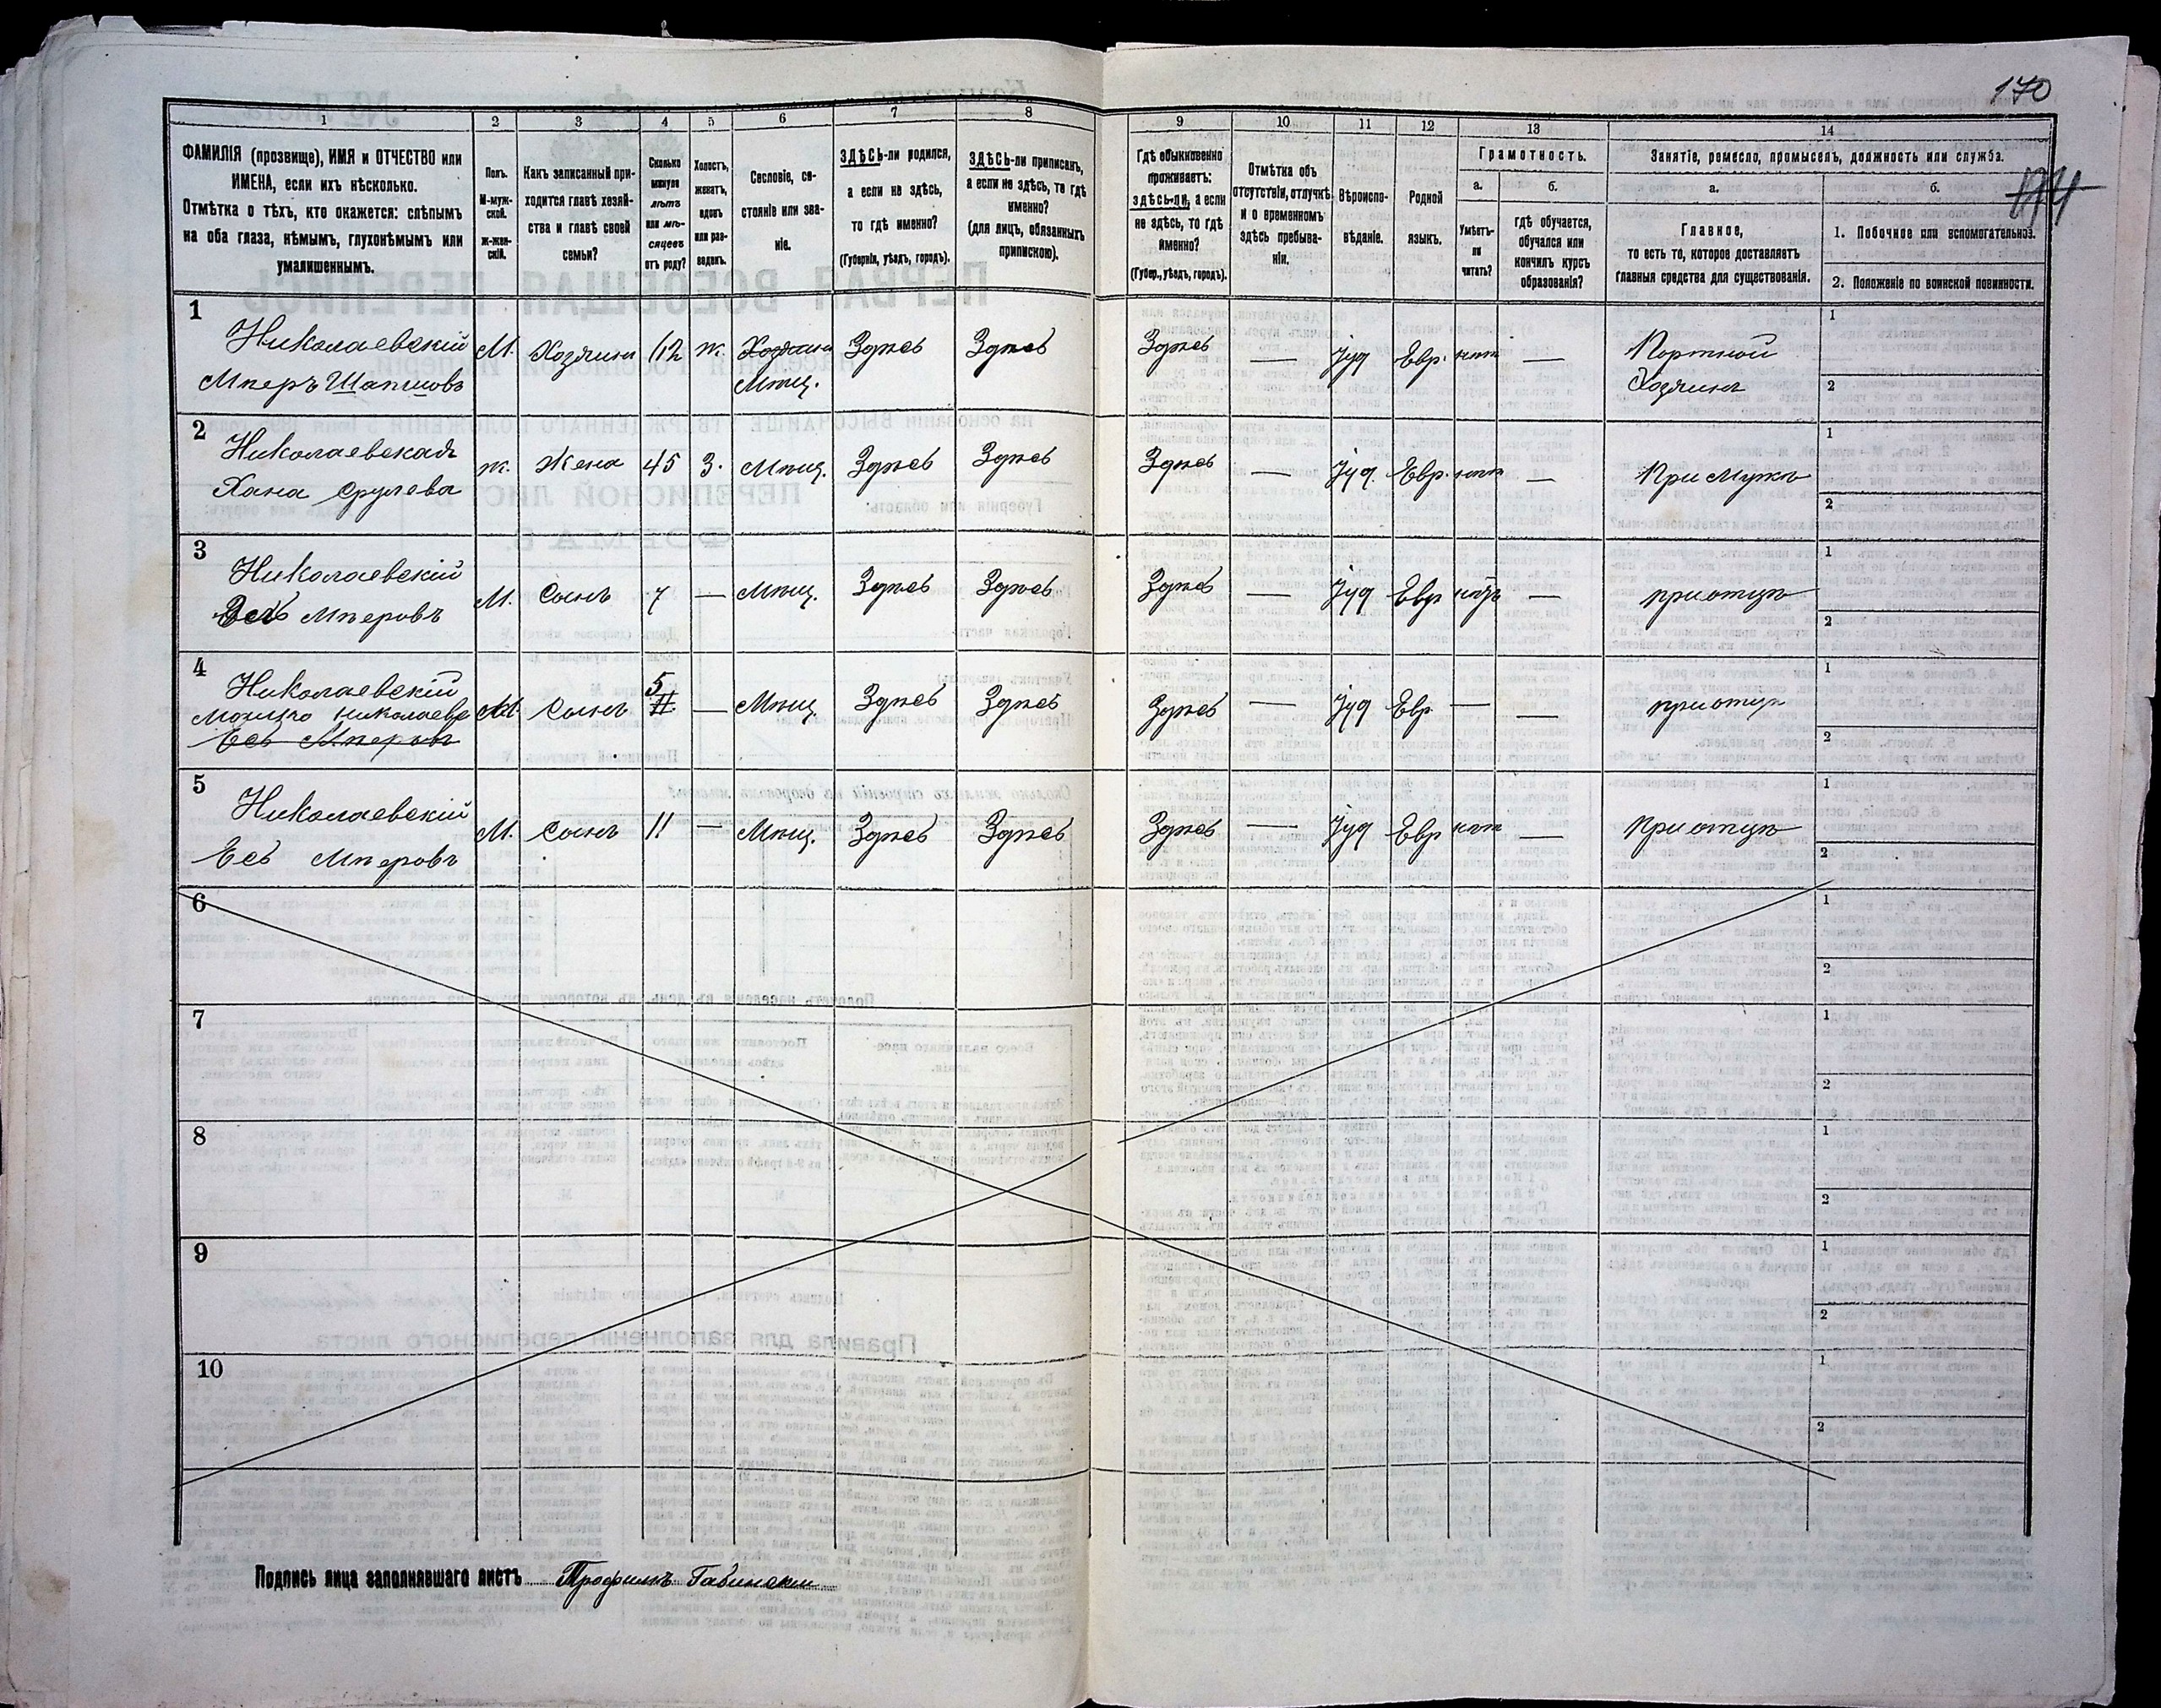 170
174
1 2 3 4 5 6 7 8 9 10 11 12 13 14
ФАМИЛІЯ (прозвище), ИМЯ и ОТЧЕСТВО или
ИМЕНА, если ихъ нѣсколько.
Отмѣтка о тѣхъ, кто окажется: слѣпымъ
на оба глаза, нѣмымъ, глухонѣмымъ или
умалишеннымъ.
Полъ.
М-муж-
ской.
ж-жен-
скій.
Какъ записанный при-
ходится главѣ хозяй-
ства и главѣ своей
семьи?
Сколько
минуло
лѣтъ
или мѣ-
сяцевъ
отъ роду?
Холостъ,
женатъ,
вдовъ
или раз-
веденъ.
Сословіе, со-
стояніе или зва-
ніе.
ЗДѢСЬ-ли родился,
а если не здѣсь,
то гдѣ именно?
(Губернія, уѣздъ, городъ).
ЗДѢСЬ-ли приписанъ,
а если не здѣсь, то гдѣ
именно?
(для лицъ, обязанныхъ
припискою).
Гдѣ обыкновенно
проживаетъ:
здѣсь-ли, а если
не здѣсь, то гдѣ
именно?
(Губер., уѣздъ, городъ).
Отмѣтка объ
отсутствіи, отлучкѣ
и о временномъ
здѣсь пребыва-
ніи.
Вѣроиспо-
вѣданіе.
Родной
языкъ.
Грамотность.
а. б.
Умѣетъ-
ли
читать?
Гдѣ обучается,
обучался или
кончилъ курсъ
образованія?
Занятіе, ремесло, промыселъ, должность или служба.
а. б.
Главное,
то есть то, которое доставляетъ
главныя средства для существованія.
1. Побочное или вспомогательное.
2. Положеніе по воинской повинности.
1
Николаевскій
Мперъ
М. Хозяинъ ж. Хозяинъ
Мѣщ.
Здѣсь Здѣсь Здѣсь — Іуд Евр. нѣт —
Портной
Хозяинъ
1
2
2
Николаевская
Хана Срулева
ж. Жена 45 З. Мѣщ. Здѣсь Здѣсь Здѣсь — Іуд. Евр. нѣт — При мужѣ
1
2
3
Николаевскій
Мѣеровъ
М. Сынъ 7 — Мѣщ. Здѣсь Здѣсь Здѣсь — Іуд Евр нѣтъ — при отцѣ
1
2
4
Николаевскій
Есь Мѣеровъ
М. Сынъ 5 11 — Мѣщ. Здѣсь Здѣсь Здѣсь — Іуд Евр — — при отцѣ
1
2
5
Николаевскій
Есь Мѣеровъ
М. Сынъ 11 — Мѣщ. Здѣсь Здѣсь Здѣсь — Іуд Евр нѣт — При отцѣ
1
2
6
1
2
7
1
2
8
1
2
9
1
2
10
1
2
Подпись лица заполнявшаго листъ Трофимъ Габински